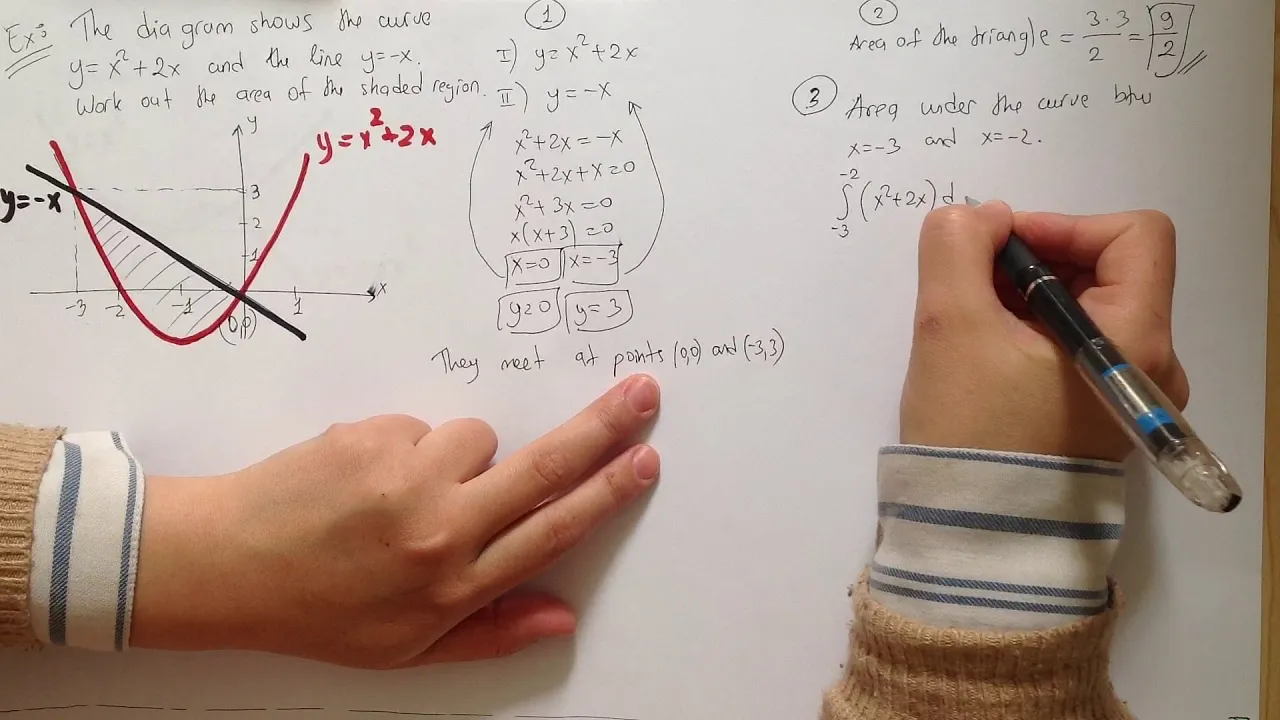 Ex:
The diagram shows the curve
y = x² + 2x and the line y = -x.
Work out the area of the shaded region.
y = x² + 2x
y = -x
y
3
2
1
x
-3 -2 -1 1
(0,0)
①
I) y = x² + 2x
II) y = -x
x² + 2x = -x
x² + 2x + x = 0
x² + 3x = 0
x(x+3) = 0
x = 0 x = -3
y = 0 y = 3
They meet at points (0,0) and (-3,3)
②
Area of the triangle = 3·3/2 = 9/2
③ Area under the curve btw
x = -3 and x = -2.
-2
∫ (x² + 2x) d
-3